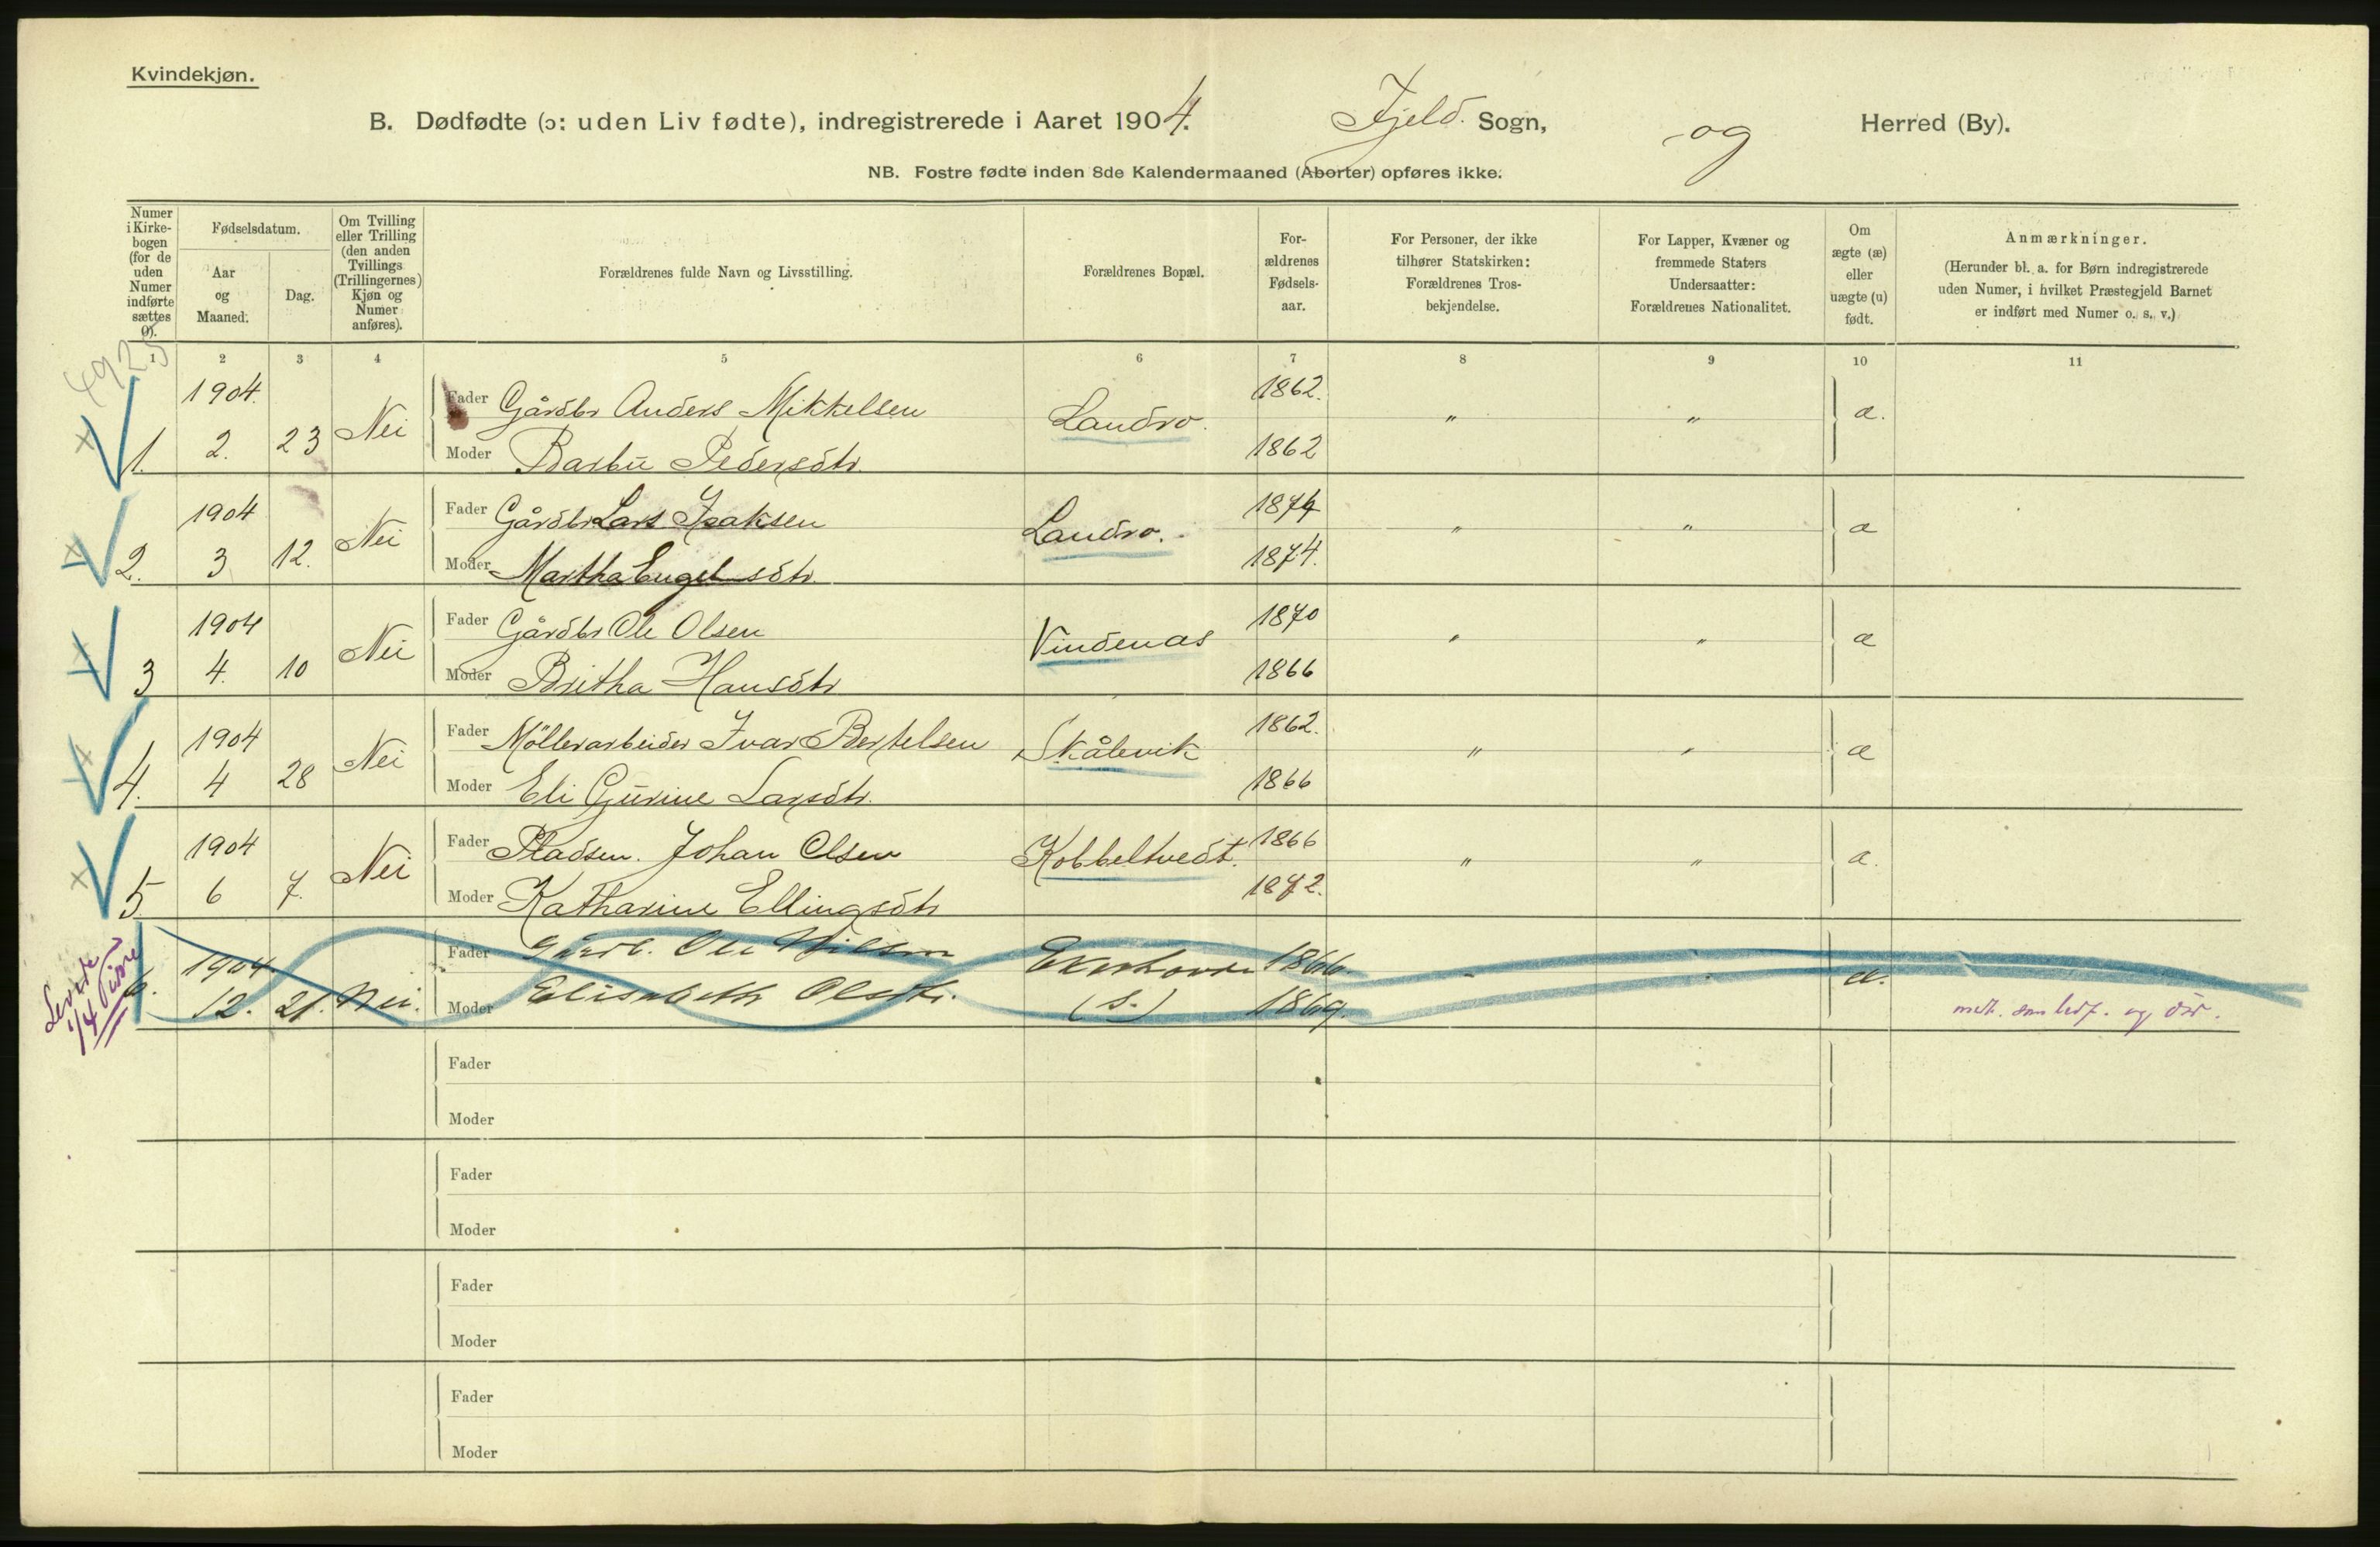 Kvindekjøn.
B. Dødfødte (ɔ: uden Liv fødte), indregistrerede i Aaret 1904. Fjeld Sogn, og Herred (By).
NB. Fostre fødte inden 8de Kalendermaaned (Aborter) opføres ikke.
Numer i Kirkebogen (for de uden Numer indførte sættes 0).
Fødselsdatum.
Aar og Maaned.
Dag.
Om Tvilling eller Trilling (den anden Tvillings (Trillingernes) Kjøn og Numer anføres).
Forældrenes fulde Navn og Livsstilling.
Forældrenes Bopæl.
Forældrenes Fødselsaar.
For Personer, der ikke tilhører Statskirken: Forældrenes Trosbekjendelse.
For Lapper, Kvæner og fremmede Staters Undersaatter: Forældrenes Nationalitet.
Om ægte (æ) eller uægte (u) født.
Anmærkninger.
(Herunder bl. a. for Børn indregistrerede uden Numer, i hvilket Præstegjeld Barnet er indført med Numer o. s. v.)
1 2 3 4 5 6 7 8 9 10 11
4925
1904. Fader Gårdbr Anders Mikkelsen 1862.
1. 2. 23 Nei Landro. " " æ.
Moder Barbu Pedersdtr. 1862
1904 Fader Gårdbr Lars Isaksen 1874
2. 3 12. Nei Landro. " " æ
Moder Martha Engelsdtr. 1874.
1904 Fader Gårdbr Ole Olsen 1870
3 4. 10 Nei Vindenæs " " æ
Moder Britha Hansdtr 1866
1904 Fader Møllerarbeider Ivar Bertelsen 1862.
4. 4 28 Nei Skålevik " " æ
Moder Eli Gurine Larsdtr. 1866
1904 Fader Pladsm. Johan Olsen 1866
5 6 7. Nei Kobbeltvedt. " " æ.
Moder Katharine Ellingsdtr 1872.
Levede 1/4 Time
1904 Fader Gårdb. Ole Nilsen Ekerhovde 1866.
6. 12. 21. Nei. æ.
Moder Elisabeth Olsdtr. (S.) 1869.
som og død.
Fader
Moder
Fader
Moder
Fader
Moder
Fader
Moder